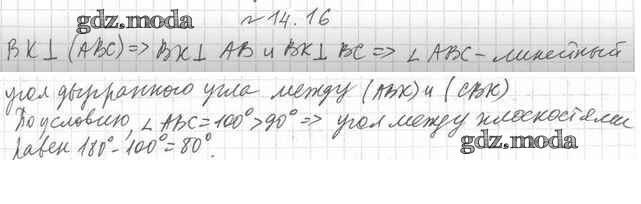 gdz.moda
№14.16
BK⊥(ABC)=> BK⊥ AB и BK⊥ BC => ∠ ABC - линейный
угол двугранного угла между (ABK) и (CBK)
По условию, ∠ ABC = 100° > 90° => угол между плоскостями
равен 180° - 100° = 80°.
gdz.moda